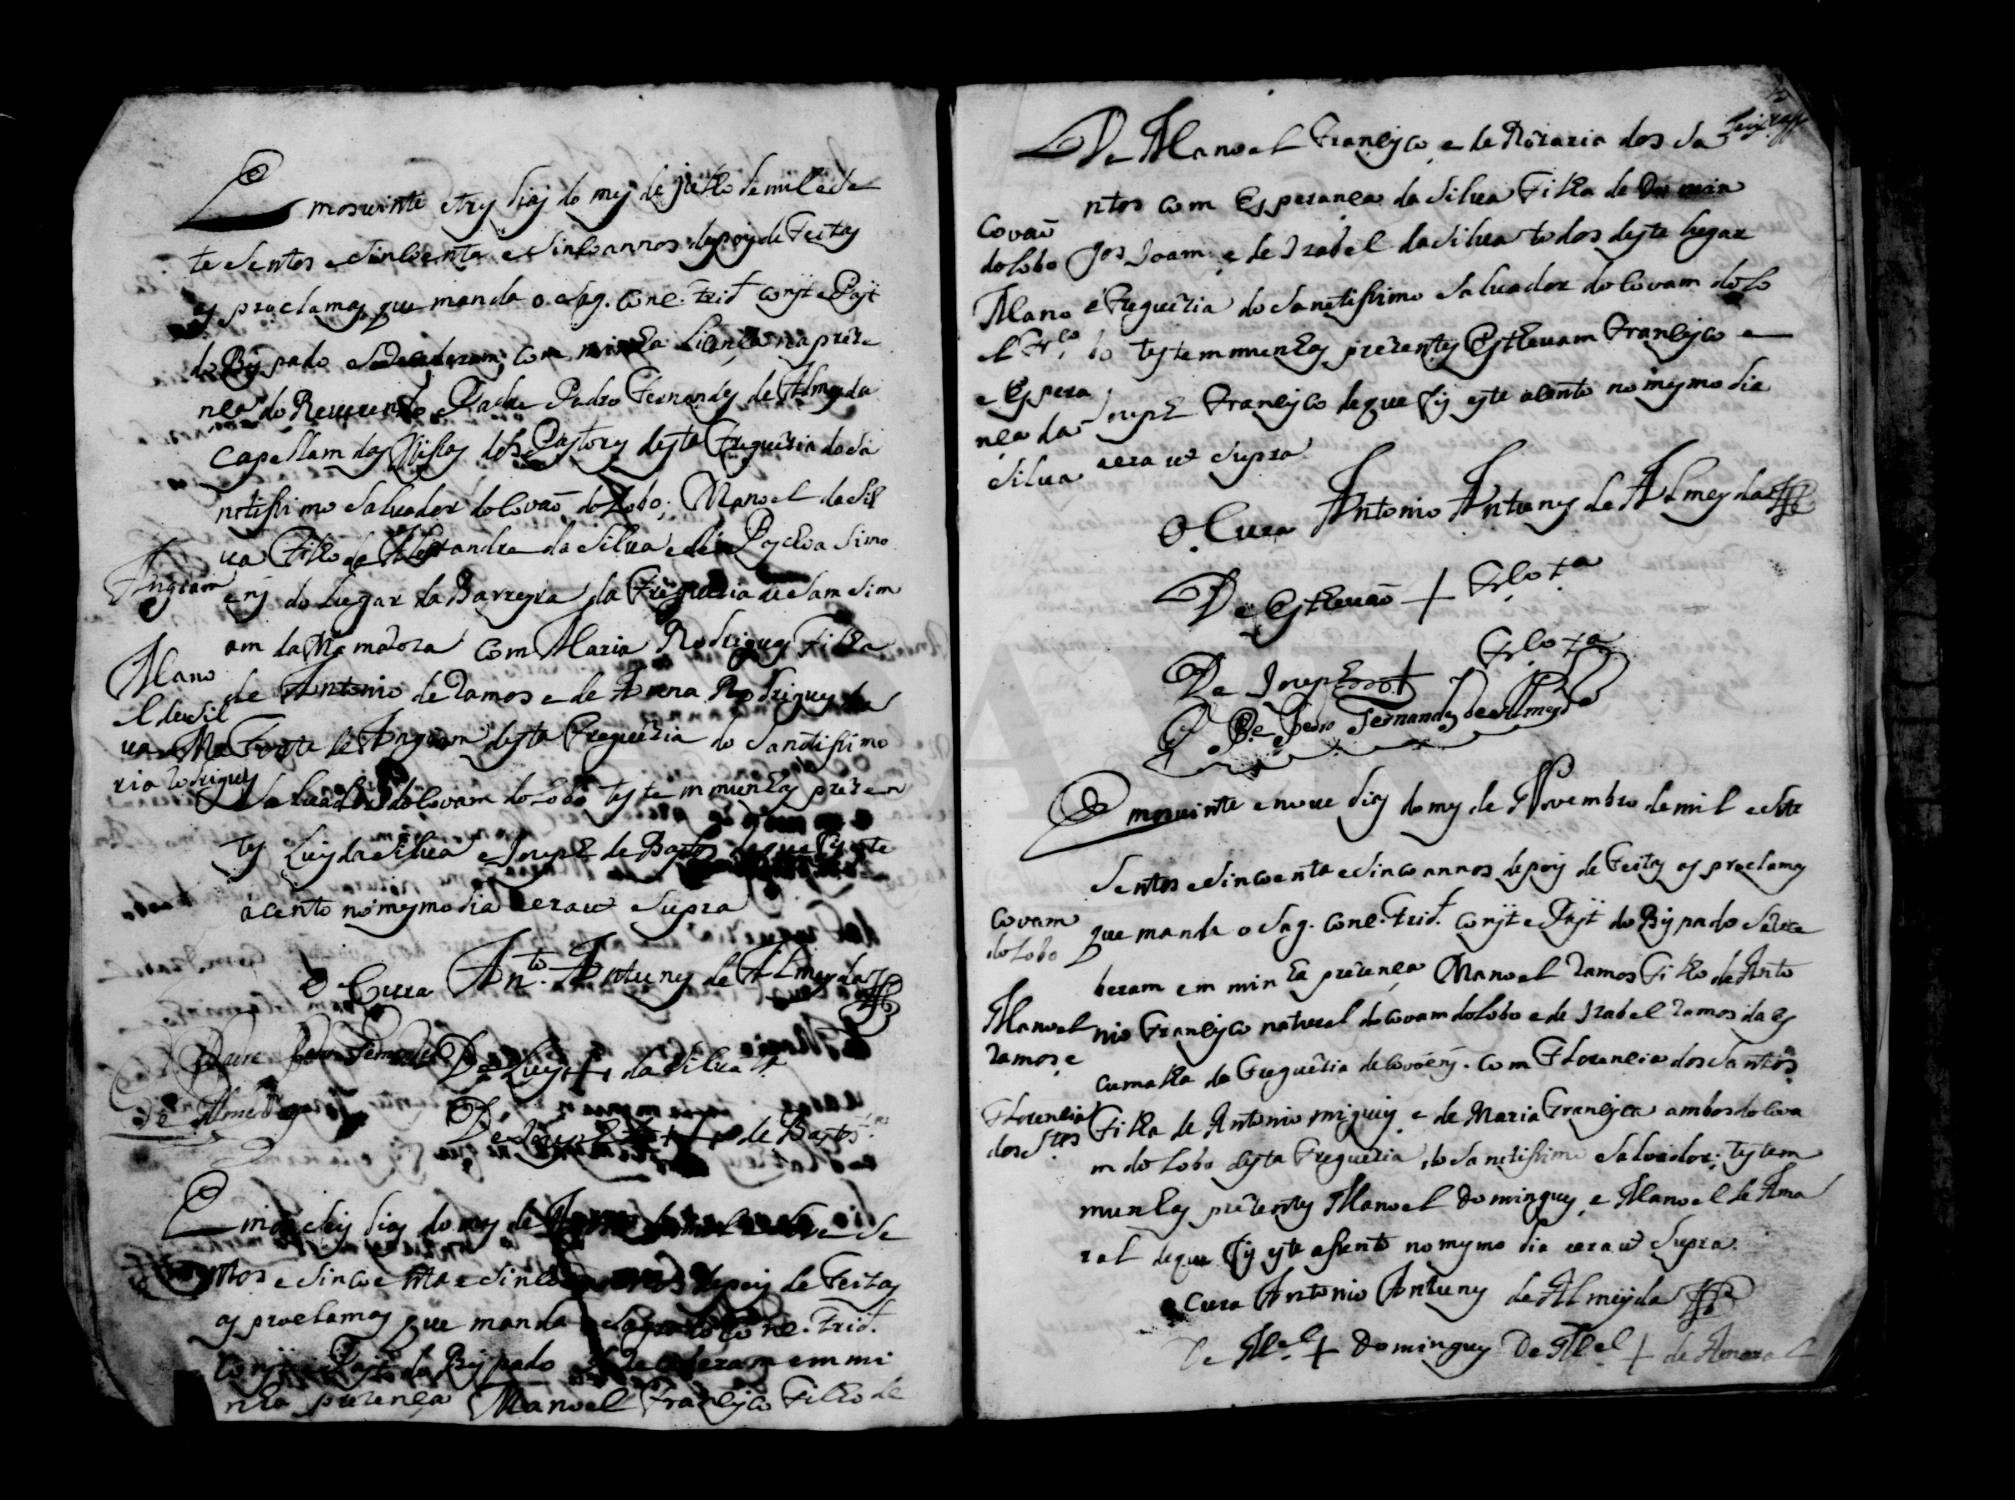 Emos vinte e tres dias do mes de julho de mil e sete
te sentos e sincoenta e sinco annos depois de feitas
as proclamas que manda o Sag. Conc. Trid.t Consst. e Past
do Bispado se receberam com minha licença na preze
nça do Reverendo Padre Pedro Fernandes de Almeyda
Capellam das Missas dos Pastores desta Freguezia do Sa
ntissimo Saluador do Covaõ do Lobo; Manoel da Sil
ua Filho de Alexandre da Silua e de Paschoa Simo
ens do Lugar da Barreyra da Freguezia de Sam Sim
am da Mamaroza com Maria Rodrigues Filha
de Antonio de Ramos e de Anna Rodrigues da
Fonte de Angiam desta Freguezia do Santissimo
Saluador do Covam do Lobo testemmunhas prezen
tes Luis da Silua e Joseph de Bastos de que fis este
acento no mesmo dia e era ut Supra
O Cura An.to Antunes de Almeyda
Padre Pedro Fernandes
de Almeyda
De Luis + da Silua
De Joseph + de Bastos
Angiam
Mano
el da Sil
ua e Ma
ria Rodrigues
Em os seis dias do mes de
entos e sincoenta e sinco annos depois de Feitas
as proclamas que manda o Sagrado Conc. Trid.
Consst. e Past. do Bispado se receberam em mi
nha prezença Manoel Francisco Filho de
De Manoel Francisco e de Rozaria dos Sa
ntos com Esperança da Silua Filha de Domin
gos Joam e de Izabel da Silua todos deste lugar
e Freguezia do Santissimo Saluador do Covam do Lo
bo testemmunhas prezentes Estevam Francisco e
Joseph Francisco de que fis este acento no mesmo dia
e era ut Supra
Covaõ
do Lobo
Mano
el Fr.co
e Espera
nça da
Silua
O Cura Antonio Antunes de Almeyda
De Estevaõ + Fr.co t.a
De Joseph + Fr.co t.a
O P.e Pedro Fernandes de Almeyda
Em os vinte e noue dias do mes de Novembro de mil e sete
sentos e sincoenta e sinco annos depois de Feitas as proclamas
que manda o Sag. Conc. Trid.t Consst. e Past. do Bispado se rece
beram em minha prezença Manoel Ramos Filho de Anto
nio Francisco natural do Covam do Lobo e de Izabel Ramos da es
cumalha da Freguezia de Covões. Com Florencia dos Santos
Filha de Antonio Miguis e de Maria Francisca ambos do Cova
m do Lobo desta Freguezia do Santissimo Salvador; testem
munhas prezentes Manoel Domingues e Manoel de Ama
ral de que fis este assento no mesmo dia e era ut Supra
Covam
do Lobo
Manoel
Ramos e
Florencia
dos S.tos
o Cura Antonio Antunes de Almeyda
De M.el + Domingues De M.el + de Amaral